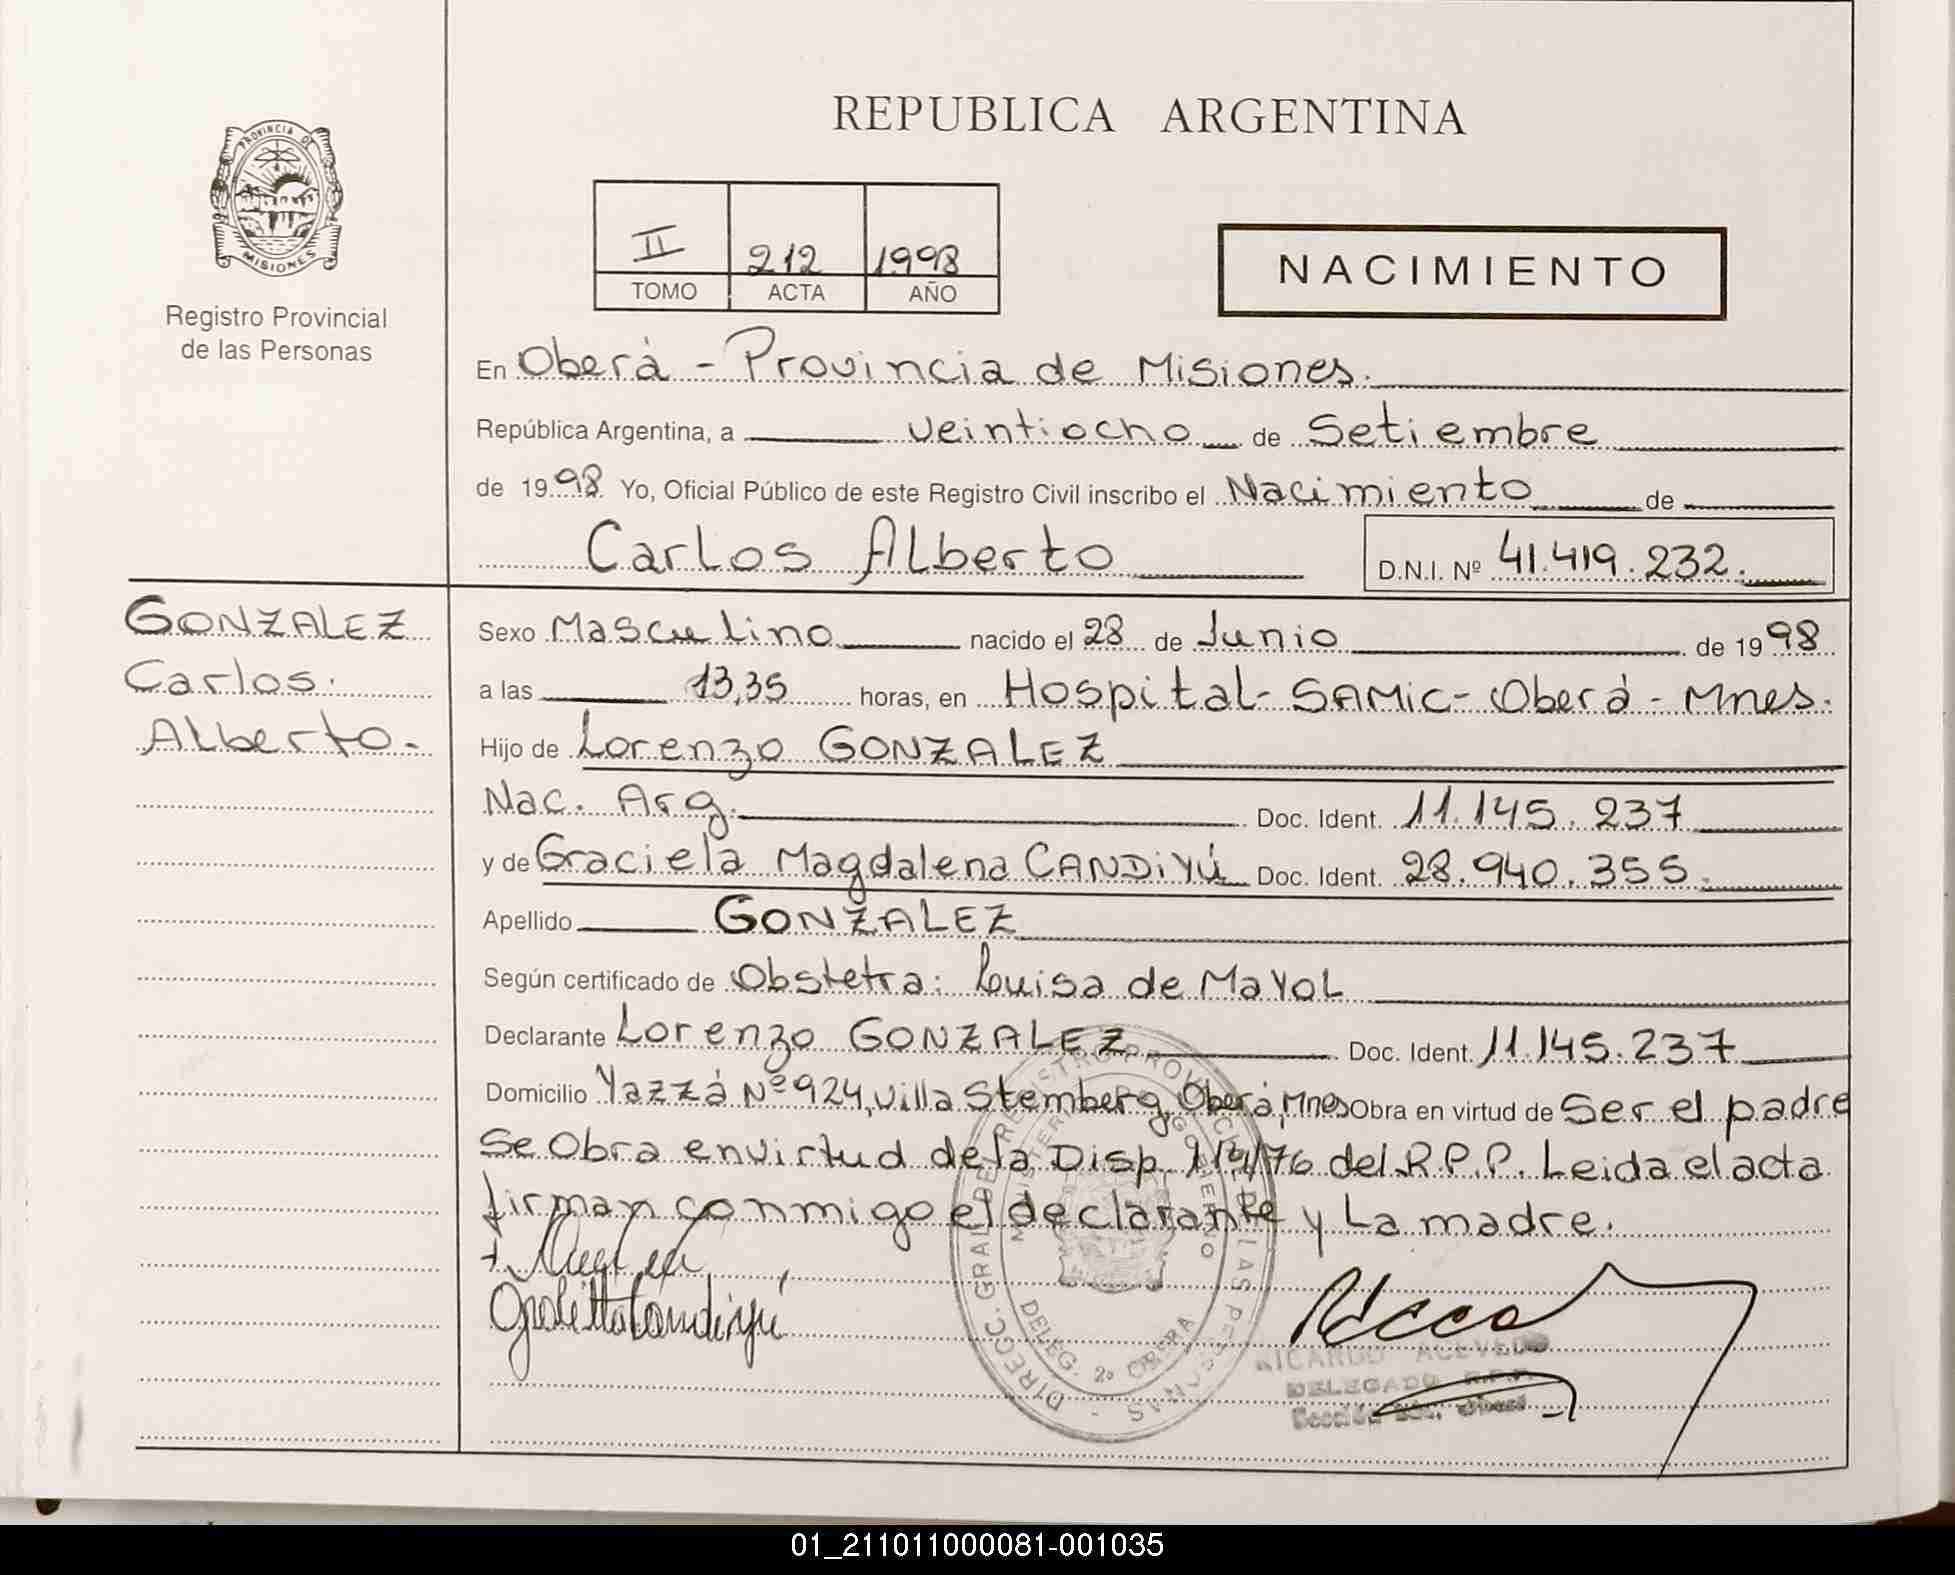 PROVINCIA DE
MISIONES
Registro Provincial
de las Personas
REPUBLICA ARGENTINA
II 212 1998
TOMO ACTA AÑO
NACIMIENTO
En Oberá - Provincia de Misiones.
República Argentina, a veintiocho de Setiembre
de 1998 Yo, Oficial Público de este Registro Civil inscribo el Nacimiento de
Carlos Alberto D.N.I. Nº 41.419.232.
GONZALEZ
Carlos.
Alberto.-
Sexo Masculino nacido el 28 de Junio de 1998
a las 13,35 horas, en Hospital- SAMIC- Oberá - Mnes.
Hijo de Lorenzo GONZALEZ
Nac. Arg. Doc. Ident. 11.145.237
y de Graciela Magdalena CANDIYÚ Doc. Ident. 28.940.355.
Apellido GONZALEZ
Según certificado de Obstetra: Luisa de MAYOL
Declarante Lorenzo GONZALEZ Doc. Ident. 11.145.237
Domicilio Yazzá Nº 924, Villa Stemberg, Oberá, Mnes Obra en virtud de Ser el padre
Se Obra en virtud de la Disp. 1/9/76 del R.P.P. Leida el acta
firman conmigo el declarante y La madre.
DIRECC. GRAL. DE REGISTRO PROVINCIAL DE LAS PERSONAS
MINISTERIO DE GOBIERNO
DELEG. 2ª OBERA
RICARDO ACEVEDO
DELEGADO R.P.P.
01_211011000081-001035